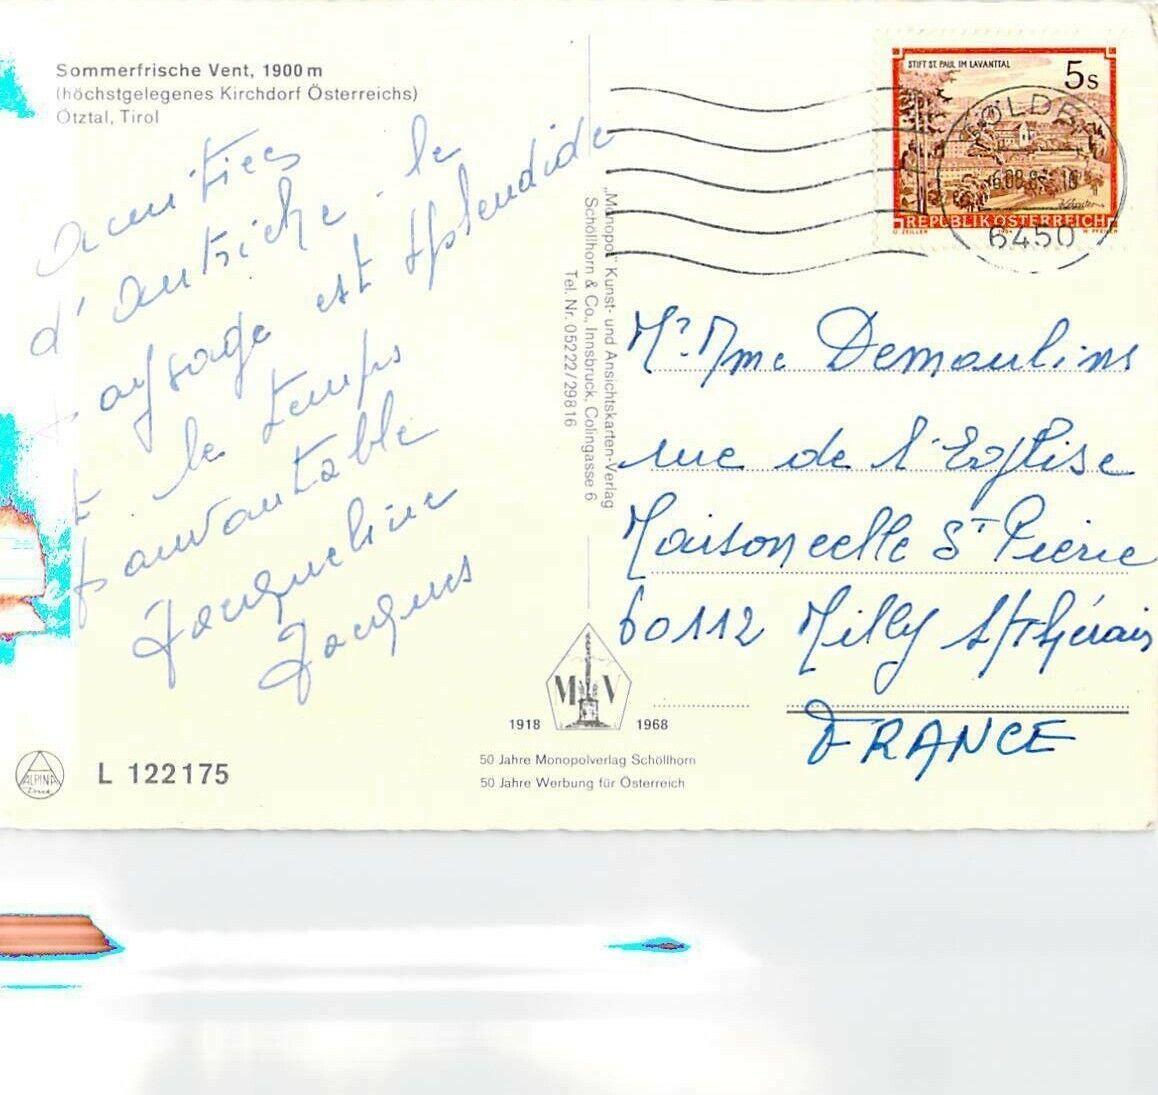 Sommerfrische Vent, 1900 m
(höchstgelegenes Kirchdorf Österreichs)
Ötztal, Tirol
amitiés
d'autriche. le
paysage est splendide
et le temps
Jacqueline
Jacques
"Monopol" Kunst- und Ansichtskarten-Verlag
Schöllhorn & Co., Innsbruck, Colingasse 6
Tel. Nr. 05222/29816
STIFT ST. PAUL IM LAVANTTAL
5s
REPUBLIK ÖSTERREICH
G. ZEILLER 1984 W. PFEILER
SÖLDEN
6450
Mr. Mme Demoulins
rue de l'Eglise
Maisoncelle St Pierre
60112 Milly s/Thérain
FRANCE
M V
1918 1968
50 Jahre Monopolverlag Schöllhorn
50 Jahre Werbung für Österreich
ALPINA
Druck
L 122175